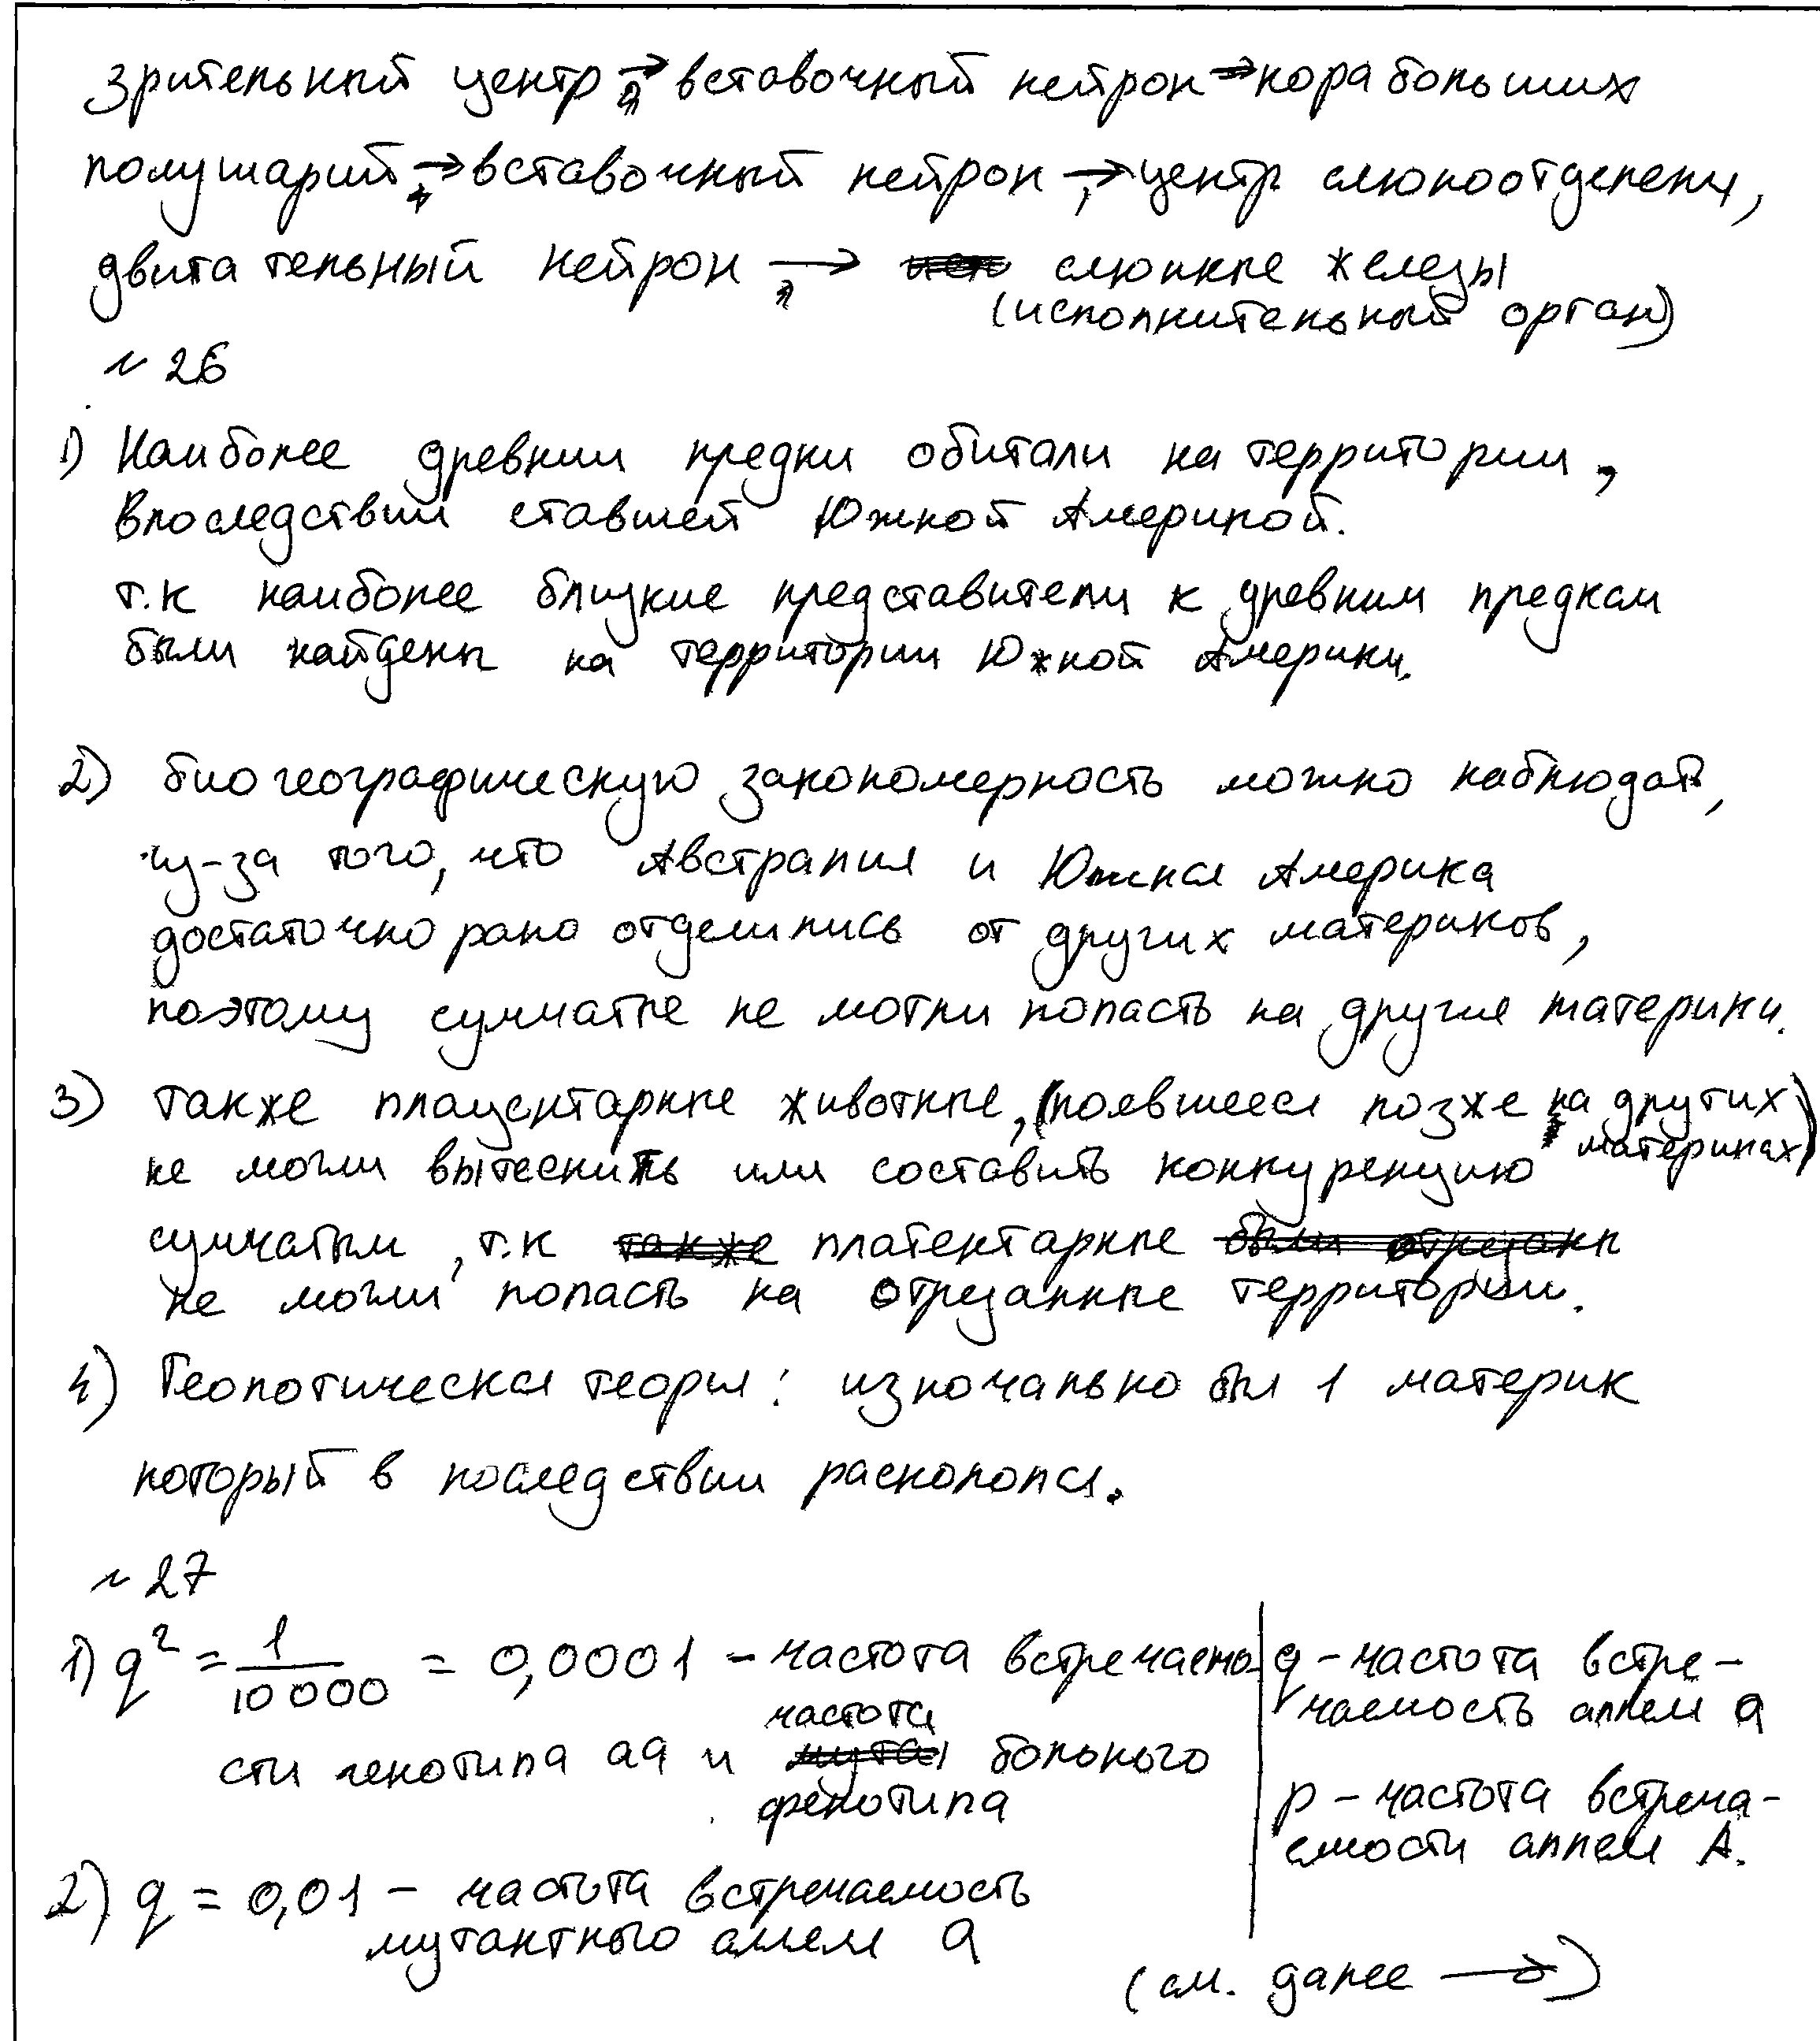 зрительный центр → вставочный нейрон → кора больших
полушарий → вставочный нейрон → центр слюноотделени,
двигательный нейрон → слюнные железы
(исполнительный орган)
№ 26
1) Наиболее древнии предки обитали на территории,
впоследствии ставшей Южной Америкой.
т.к наиболее близкие представители к древним предкам
были найдены на территории Южной Америки.
2) биогеографическую закономерность можно наблюдать,
из-за того, что Австралия и Южная Америка
достаточно рано отделились от других материков,
поэтому сумчатые не могли попасть на другие материки.
3) также плацентарные животные, (появшееся позже на других
материках)
не могли вытеснить или составить конкуренцию
сумчатым, т.к платентарные
не могли попасть на отрезанные территории.
4) Геологическая теория: изначально был 1 материк
который в последствии раскололся.
№ 27
1) q² = 1/10000 = 0,0001 – частота встречаемо-
сти генотипа аа и частота больного
фенотипа
q – частота встре-
чаемость аллеля а
p – частота встреча-
емости аллеля А.
2) q = 0,01 – частота встречаемость
мутантного аллеля а
(см. далее →)